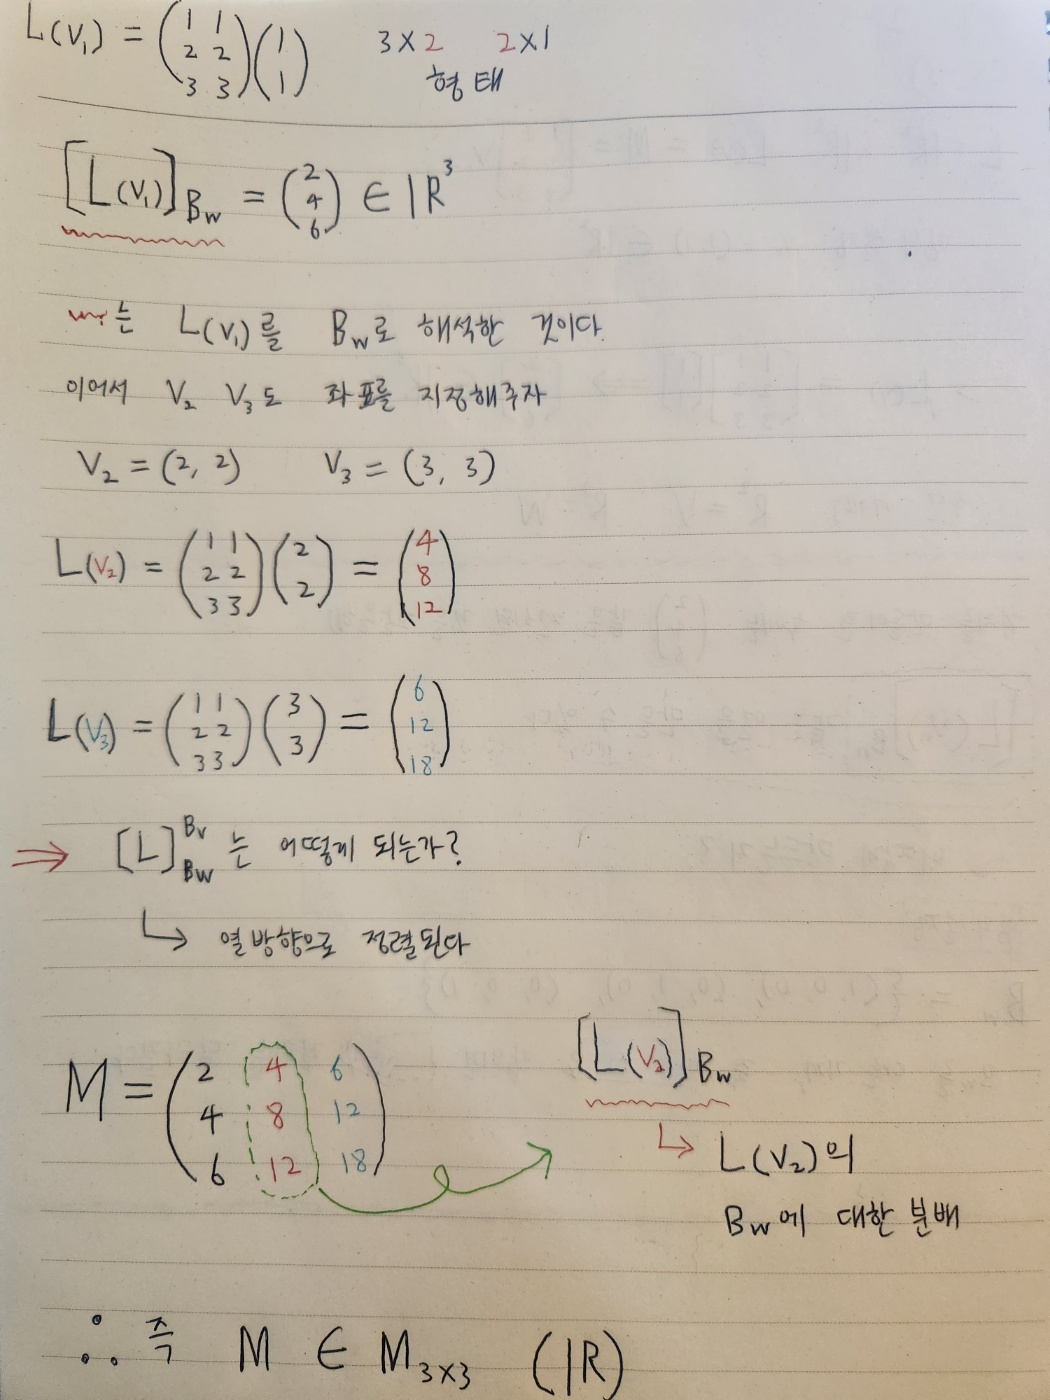 L(V₁) = (1 1 / 2 2 / 3 3)(1 / 1) 3×2 2×1
형태
[L(V₁)]_Bw = (2 / 4 / 6) ∈ ℝ³
는 L(V₁)를 Bw로 해석한 것이다.
이어서 V₂ V₃도 좌표를 지정해주자
V₂ = (2, 2) V₃ = (3, 3)
L(V₂) = (1 1 / 2 2 / 3 3)(2 / 2) = (4 / 8 / 12)
L(V₃) = (1 1 / 2 2 / 3 3)(3 / 3) = (6 / 12 / 18)
⇒ [L]^Bv_Bw 는 어떻게 되는가?
↳ 열방향으로 정렬된다
M = (2 4 6 / 4 8 12 / 6 12 18)
[L(V₂)]_Bw
↳ L(V₂)의
Bw에 대한 분배
∴ 즉 M ∈ M₃ₓ₃ (ℝ)